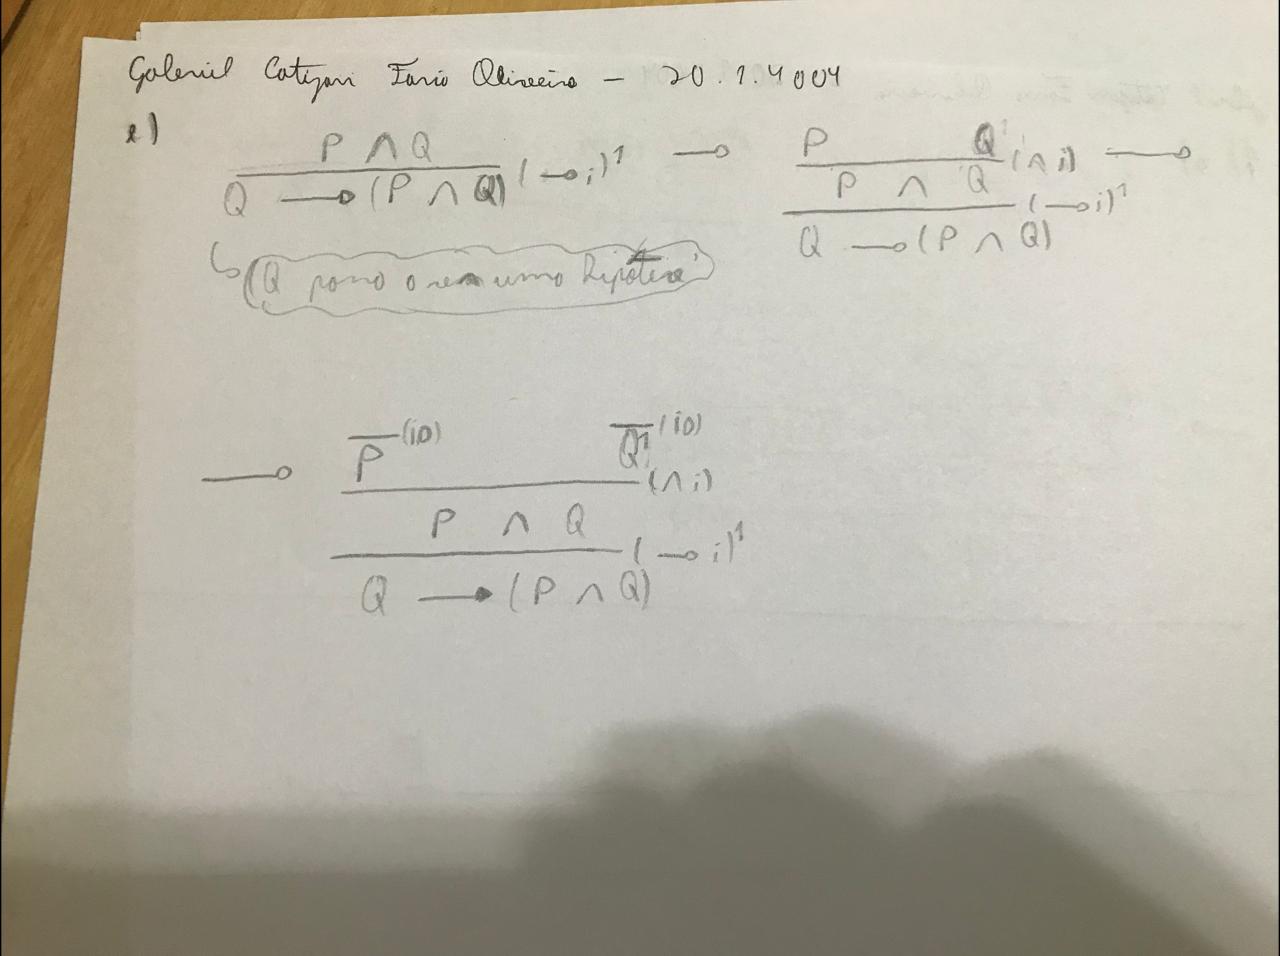 Gabriel Catizani Faria Oliveira - 20.1.4004
e)
P ∧ Q
Q → (P ∧ Q) (→i)¹ →
P Q¹ (∧i) →
P ∧ Q (→i)¹
Q → (P ∧ Q)
(Q passa a ser uma hipótese)
→ P (iD) Q¹ (iD)
(∧i)
P ∧ Q
(→i)¹
Q → (P ∧ Q)